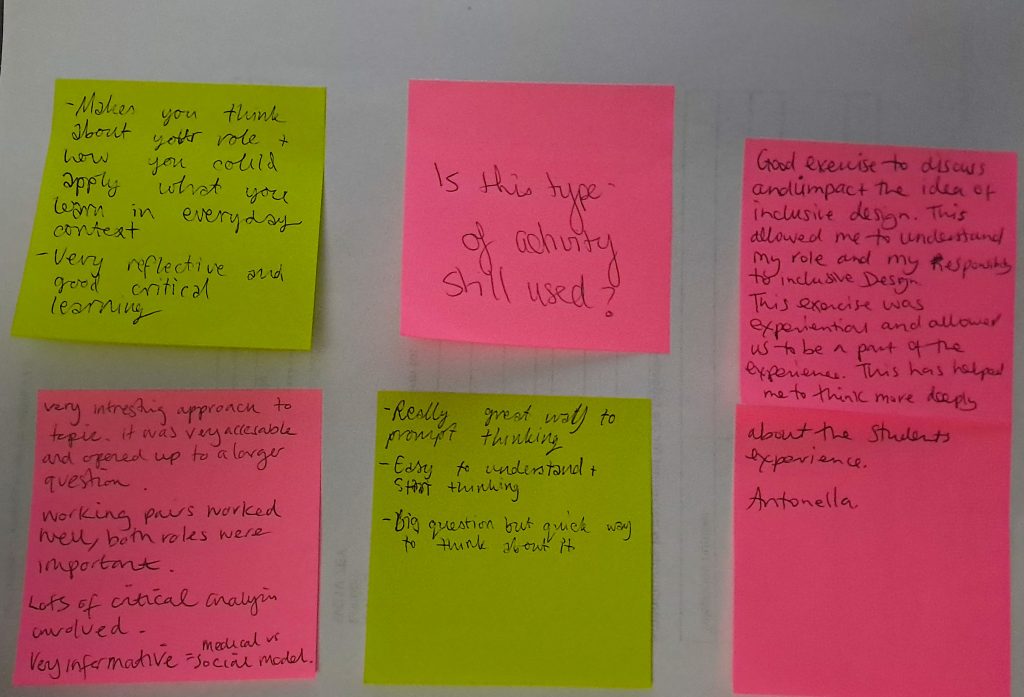 -Makes you think
about your role +
how you could
apply what you
learn in everyday
context
-Very reflective and
good critical
learning
Is this type
of activity
still used?
Good exercise to discuss
and impact the idea of
inclusive design. This
allowed me to understand
my role and my Responsibility
to inclusive Design.
This exercise was
experiential and allowed
us to be a part of the
experience. This has helped
me to think more deeply
about the Students
experience.
Antonella.
very intresting approach to
topic. it was very accesable
and opened up to a larger
question.
working pairs worked
well, both roles were
important.
Lots of critical analysis
involved.
Very informative = medical vs
social model.
-Really great way to
prompt thinking
-Easy to understand +
start thinking
-Big question but quick way
to think about it